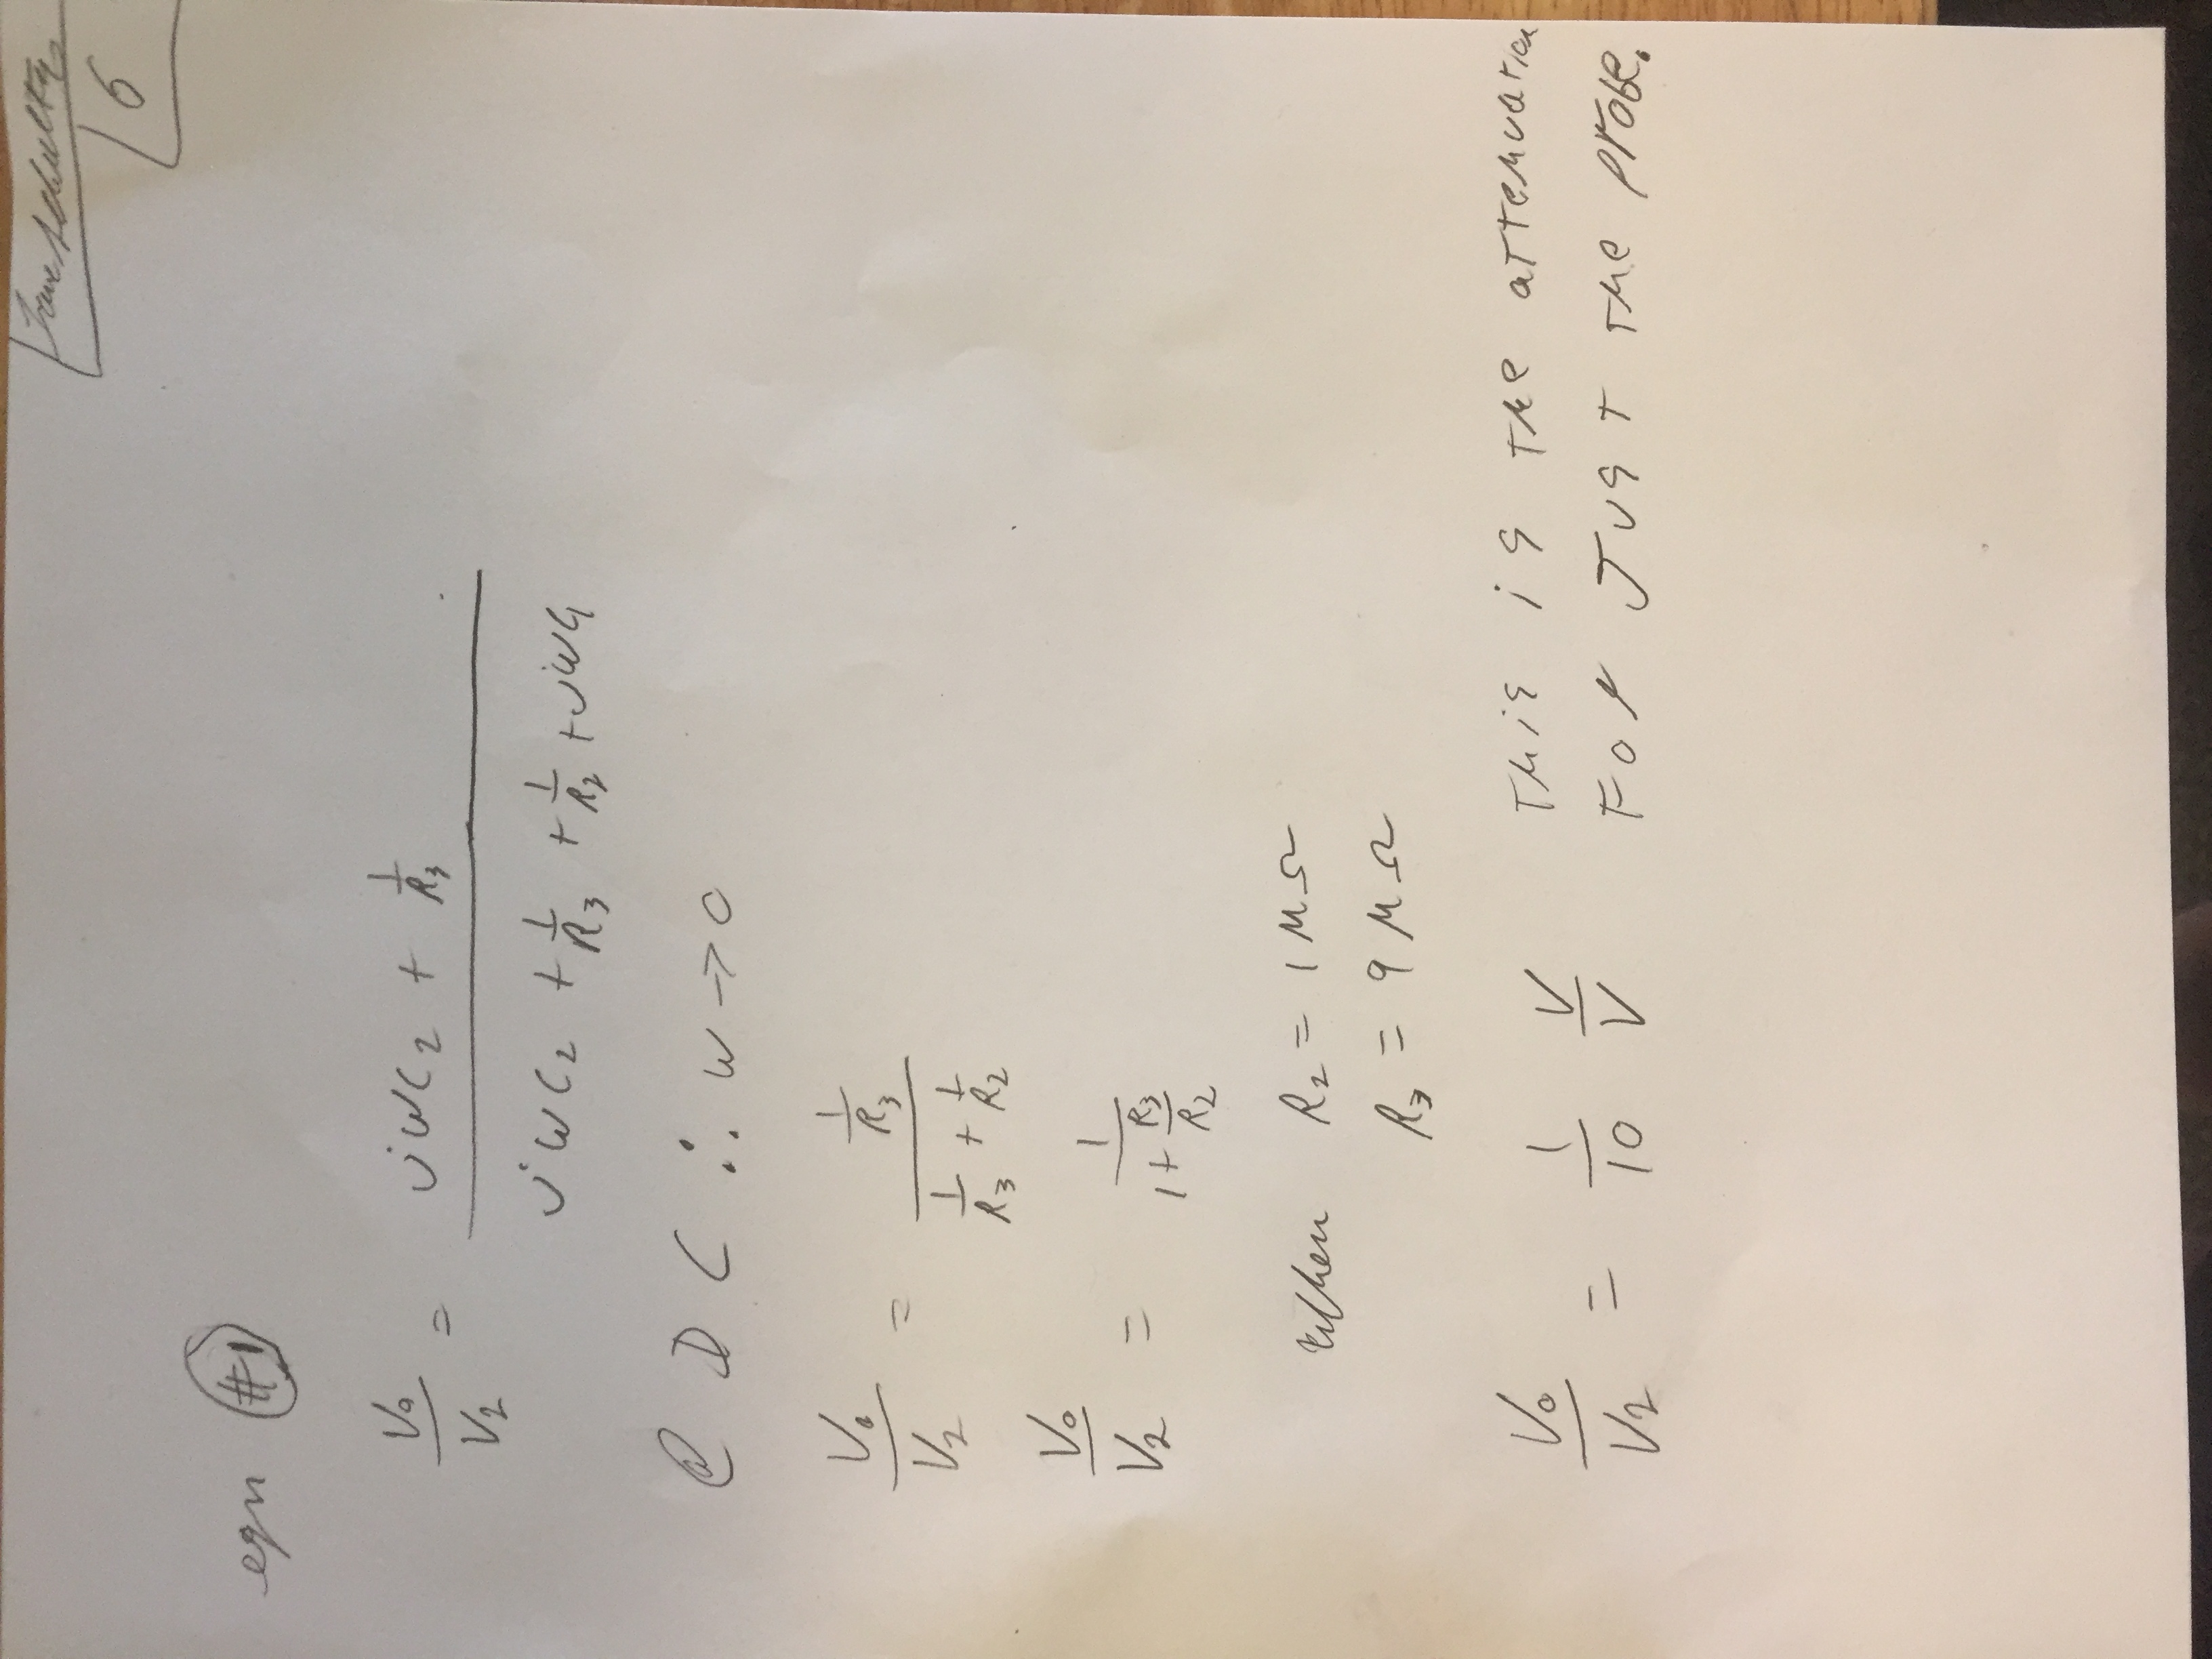 6
eqn #1
V₀/V₂ = (jωC₂ + 1/R₃) / (jωC₂ + 1/R₃ + 1/R₂ + jωC₁)
@ DC ∴ ω → 0
V₀/V₂ = (1/R₃) / (1/R₃ + 1/R₂)
V₀/V₂ = 1 / (1 + R₃/R₂)
when R₂ = 1 MΩ
R₃ = 9 MΩ
V₀/V₂ = 1/10 V/V This is the attenuation
For Just the probe.